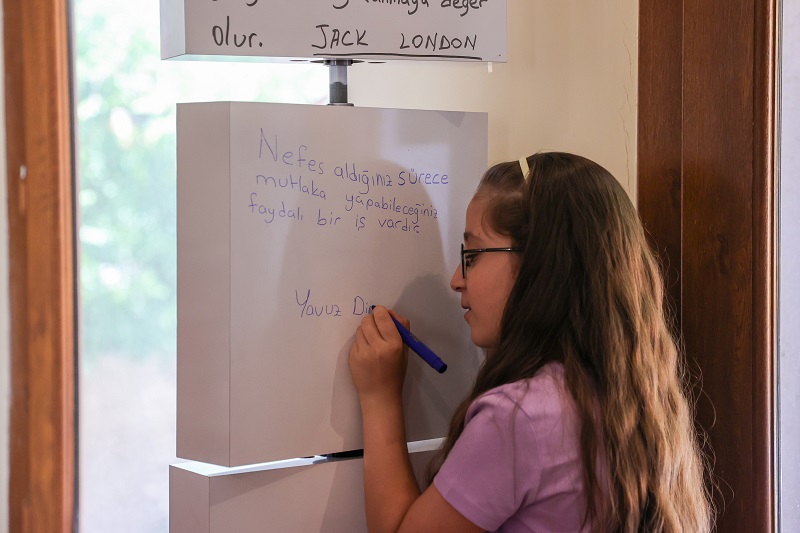 değer
olur. JACK LONDON
Nefes aldığınız sürece
mutlaka yapabileceğiniz
faydalı bir iş vardır
Yavuz Din